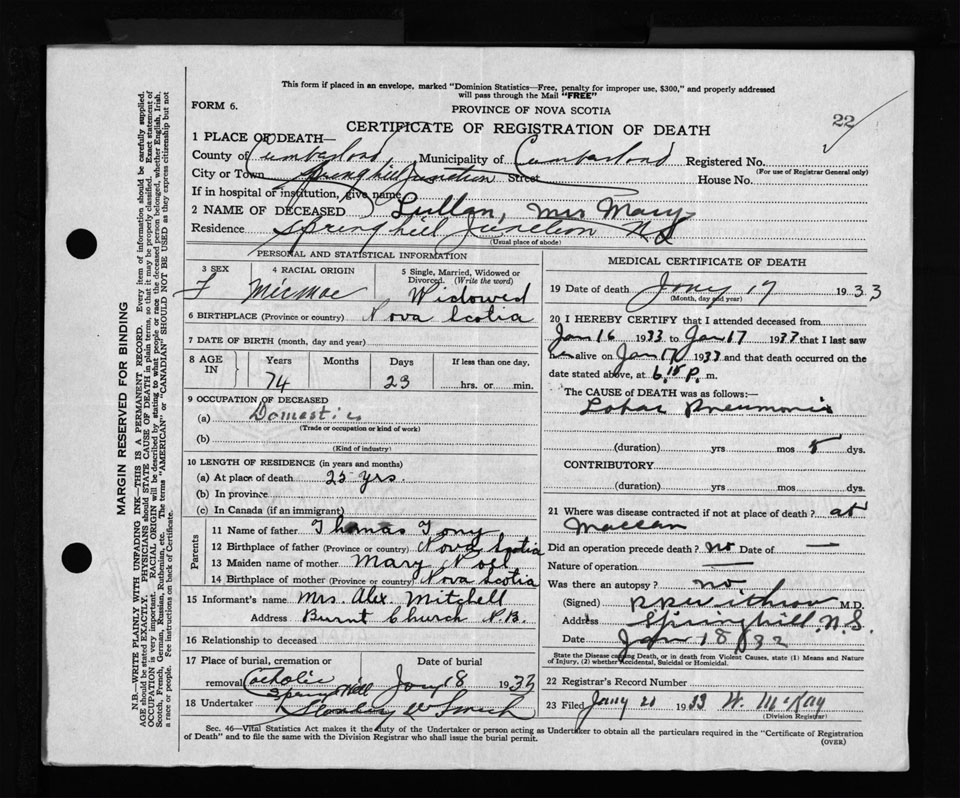 This form if placed in an envelope, marked "Dominion Statistics—Free, penalty for improper use, $300," and properly addressed
will pass through the Mail "FREE"
FORM 6.
PROVINCE OF NOVA SCOTIA
22
CERTIFICATE OF REGISTRATION OF DEATH
1 PLACE OF DEATH—
County of Cumberland, Municipality of Cumberland Registered No.
(For use of Registrar General only)
City or Town Springhill Junction Street House No.
If in hospital or institution, give name
2 NAME OF DECEASED Mrs Mary
Residence Springhill Junction NS
(Usual place of abode)
PERSONAL AND STATISTICAL INFORMATION
3 SEX 4 RACIAL ORIGIN 5 Single, Married, Widowed or Divorced. (Write the word)
F Micmac Widowed
6 BIRTHPLACE (Province or country) Nova Scotia
7 DATE OF BIRTH (month, day and year)
8 AGE IN Years Months Days If less than one day,
74 23 hrs. or min.
9 OCCUPATION OF DECEASED
(a) Domestic
(Trade or occupation or kind of work)
(b)
(Kind of industry)
10 LENGTH OF RESIDENCE (in years and months)
(a) At place of death 25 yrs.
(b) In province
(c) In Canada (if an immigrant)
Parents
11 Name of father Thomas Tony
12 Birthplace of father (Province or country) Nova Scotia
13 Maiden name of mother Mary Noel
14 Birthplace of mother (Province or country) Nova Scotia
15 Informant's name Mrs. Alex. Mitchell
Address Burnt Church N.B.
16 Relationship to deceased
17 Place of burial, cremation or removal Date of burial
Catholic Springhill Jany 18 1933
18 Undertaker
MEDICAL CERTIFICATE OF DEATH
19 Date of death Jany 17 1933
(Month, day and year)
20 I HEREBY CERTIFY that I attended deceased from
Jan 16 1933 to Jan 17 1933 that I last saw
her alive on Jan 17 1933 and that death occurred on the
date stated above, at P. m.
The CAUSE OF DEATH was as follows:—
Lobar Pneumonia
(duration) yrs mos dys.
CONTRIBUTORY
(duration) yrs mos dys.
21 Where was disease contracted if not at place of death? at
Maccan
Did an operation precede death? no Date of —
Nature of operation —
Was there an autopsy? no
(Signed) Withrow M.D.
Address Springhill, N.S.
Date Jan 18
State the Disease causing Death, or in death from Violent Causes, state (1) Means and Nature
of Injury, (2) whether Accidental, Suicidal or Homicidal.
22 Registrar's Record Number
23 Filed Jany 1933 W. McKay
(Division Registrar)
Sec. 46—Vital Statistics Act makes it the duty of the Undertaker or person acting as Undertaker to obtain all the particulars required in the "Certificate of Registration
of Death" and to file the same with the Division Registrar who shall issue the burial permit.
(OVER)
MARGIN RESERVED FOR BINDING
N.B.—WRITE PLAINLY WITH UNFADING INK—THIS IS A PERMANENT RECORD. Every item of information should be carefully supplied.
AGE should be stated EXACTLY. PHYSICIANS should STATE CAUSE OF DEATH in plain terms, so that it may be properly classified. Exact statement of
OCCUPATION is very important. RACIAL ORIGIN will be described by stating to what people or race the deceased person belonged, whether English, Irish,
Scotch, French, German, Russian, Ruthenian, etc. The terms "AMERICAN" or "CANADIAN" SHOULD NOT BE USED as they express citizenship but not
a race or people. Fee instructions on back of Certificate.